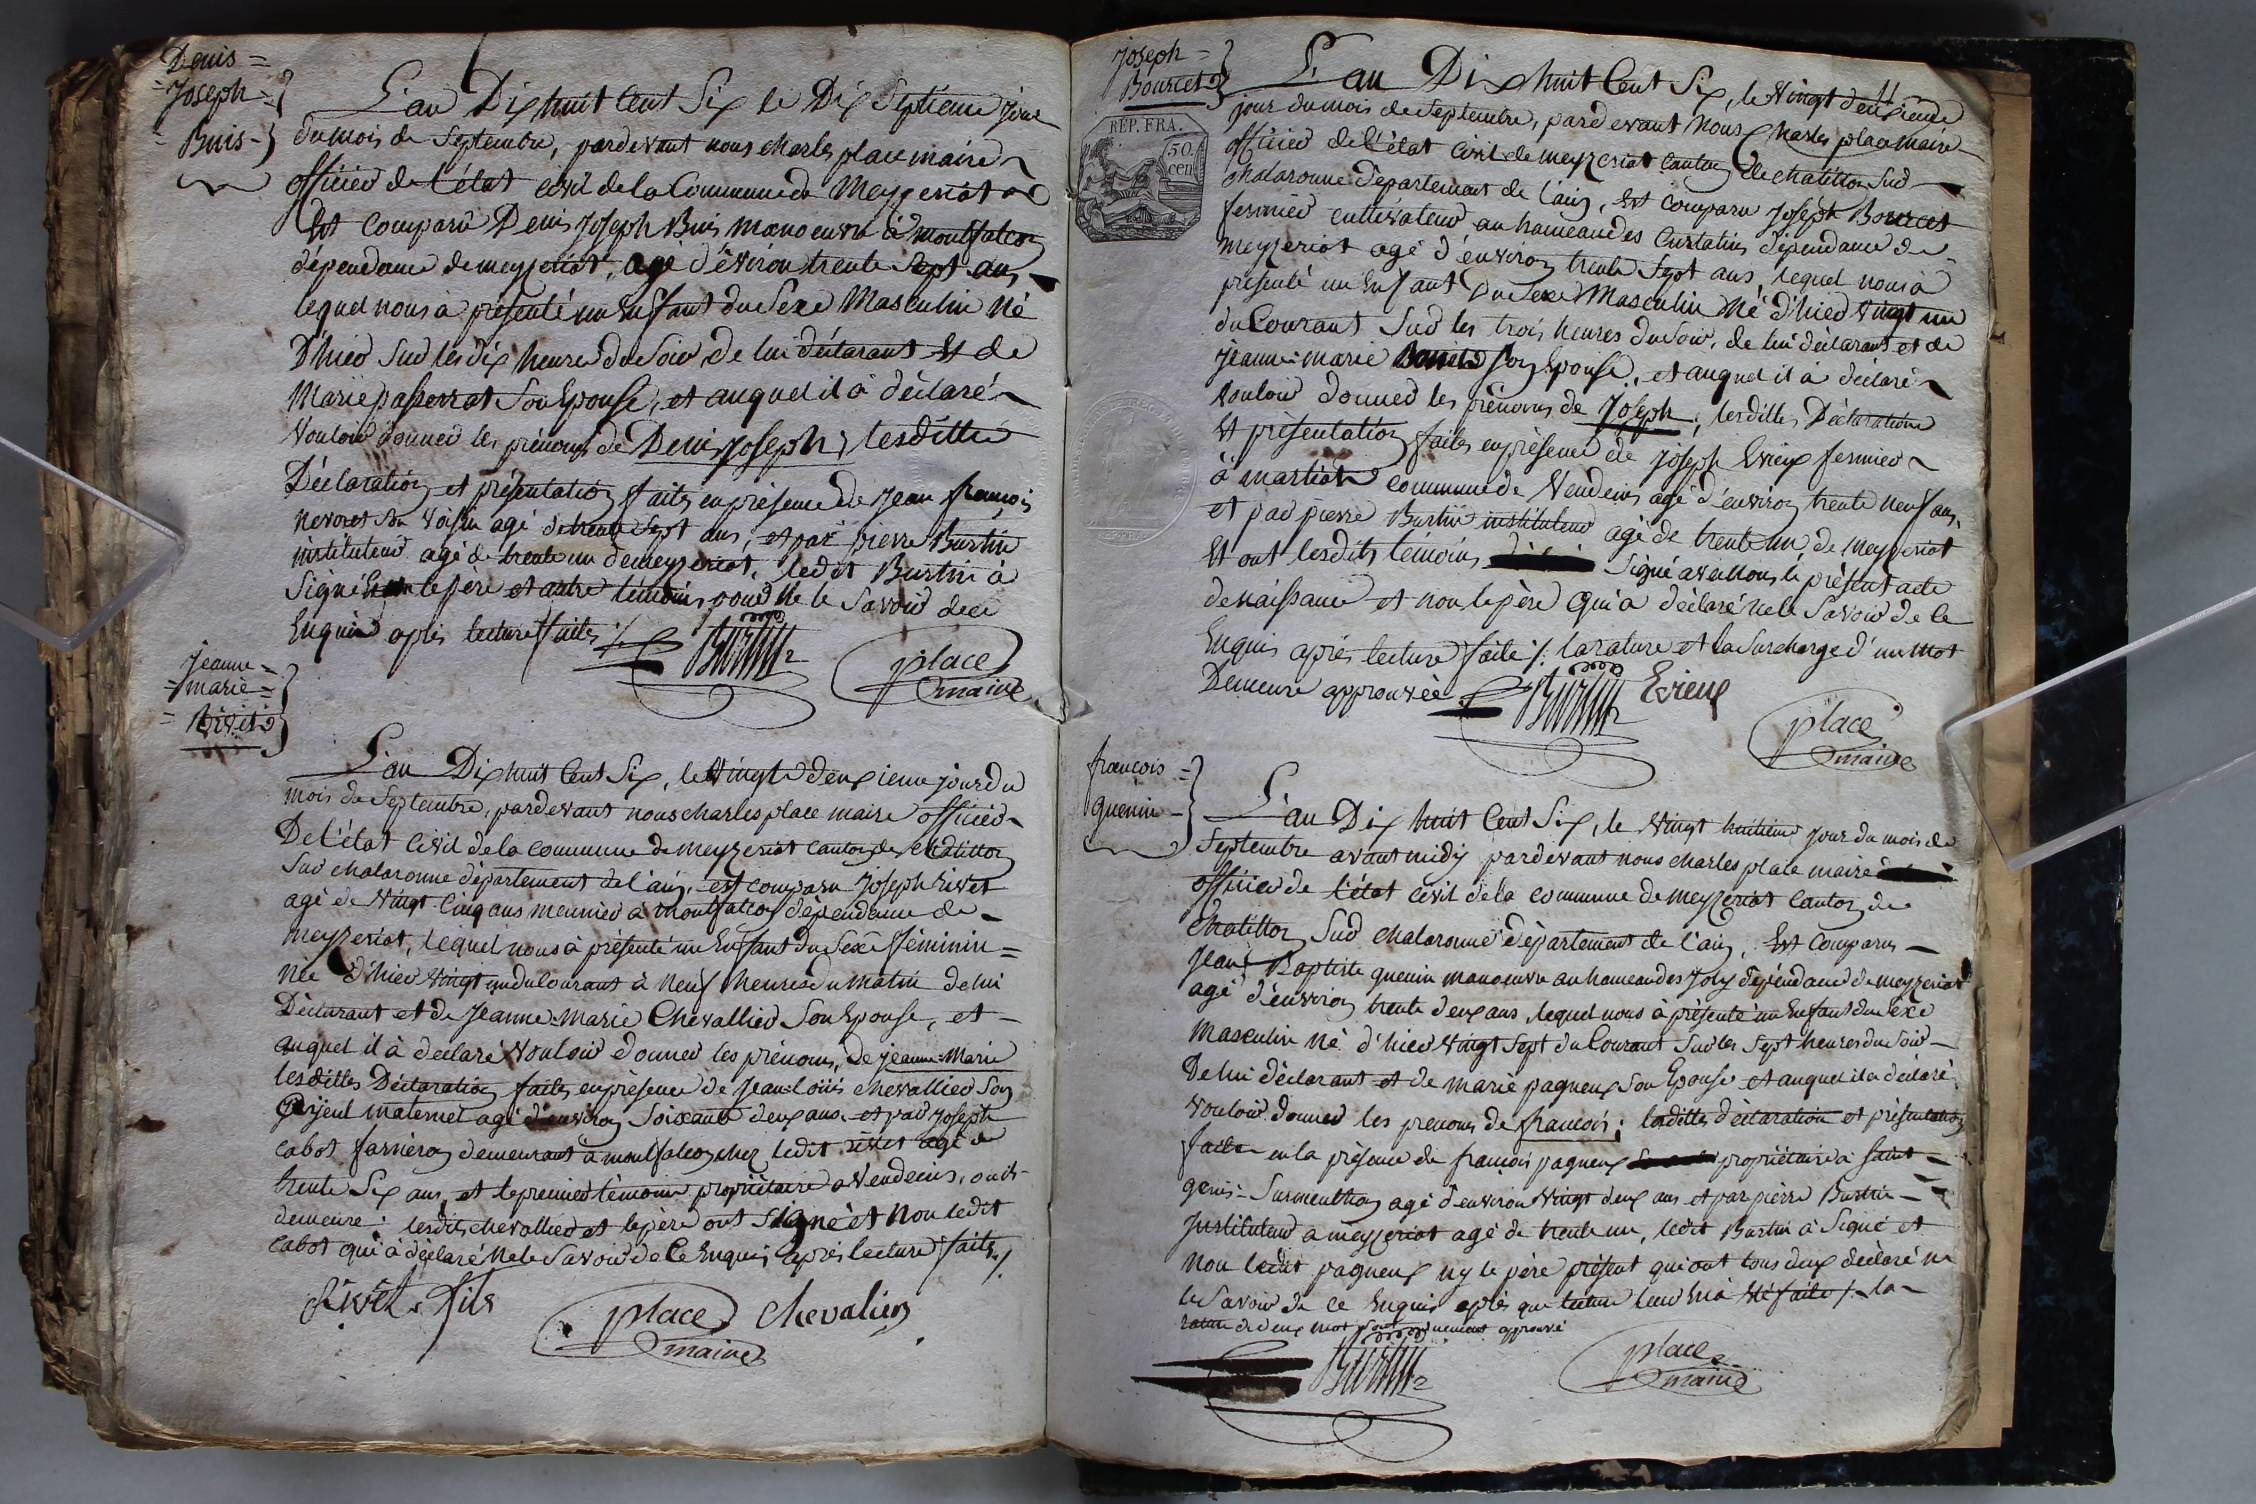 Denis =
= Joseph =
= Buis -
L'an Dix huit Cent Six le Dix Septieme jour
du mois de Septembre, pardevant nous charles place maire
officier de l'état civil de la Commune de Meyzeriat
Est comparu Denis Joseph Buis manoeuvre à montfalcon
dépendance de meyzeriat, agé d'énviron trente Sept ans,
lequel nous à présenté un Enfant du Sexe Masculin Né
D'hier Sur les dix heure du Soir, de lui déclarant Et de
Marie passerrat Son Epouse, et auquel il à déclaré
Vouloir donner les prénoms de Denis Joseph, lesditte
Déclaration et présentation faites en présence de jean françois
nevoret voisin agé de trente Sept ans, et par pierre Burtin
instituteur agé de trente un de meyzeriat, ledit Burtin à
Signé le pere et autre témoin, pour Ne le Savoir de ce
Enquis après lecture faite ./.
Burtin
place
maire
Jeanne =
= marie =
= Rivet
L'an Dix huit Cent Six, le Vingt deuxieme jour du
mois de Septembre, pardevant nous charles place maire officier
De l'état Civil de la commune de meyzeriat canton de chatillon
Sur chalaronne département de l'ain, est comparu Joseph rivet
agé de Vingt-Cinq ans meunier à montfalcon dépendance de
meyzeriat, lequel nous à présenté un Enfant du Sexe féminin =
née d'hier Vingt un du Courant à Neuf heures du matin de lui
Déclarant et de Jeanne-Marie Chevallier Son Epouse, et
auquel il à déclaré Vouloir donner les prénoms, de jeanne-Marie
lesdittes Déclaration faites en présence de Jean-Loüis chevallier Son
Ayeul maternel agé d'environ Soixante deux ans et par Joseph
Cabot farinier demeurant à montfalcon chez ledit rivet agé de
trente Six ans, et le premier témoin propriétaire a Vendeins, ou il
demeure : lesdits chevallier et le père ont Signé et Non ledit
Cabot qui à déclaré Ne le Savoir de Ce Enquis après lecture faite ./.
Rivet fils
place
maire
Chevalier
Joseph =
Bourcet
11
L'an Dix huit Cent Six, le Vingt deuxieme
jour du mois de Septembre, pardevant Nous Charles place maire
officier de l'état civil de meyzeriat Canton de chatillon Sur
chalaronne département de l'ain, Est comparu Joseph Bourcet
fermier cultivateur au hameau des Curtatins dépendance de
meyzeriat agé d'environ trente Sept ans, lequel nous à
présenté un Enfant Du Sexe Masculin Né d'hier Vingt un
du Courant Sur les trois heures du Soir, de lui déclarant et de
jeanne-marie Son Epouse, et auquel il à déclaré
Vouloir donner les prénoms de Joseph ; lesdittes Déclarations
Et présentation faites en présence de Joseph Evieux fermier
à martiat commune de Vendeins agé d'environ trente neuf ans,
et par pierre Burtin instituteur agé de trente un, de Meyzeriat
Et ont lesdits témoins Signé avec Nous le présent acte
de naissance et non le père qui a déclaré ne le Savoir de ce
Enquis après lecture faite ./. la rature et la Surcharge d'un Mot
Demeure approuvée
Burtin
Evieux
place
maire
REP. FRA.
50
cen
françois =
quenin -
L'an Dix huit Cent Six, le Vingt huitieme jour du mois de
Septembre avant midy pardevant nous charles place maire
officier de l'état civil de la commune de meyzeriat Canton de
chatillon Sur chalaronne département de l'ain, Est Comparu
Jean Baptiste quenin manoeuvre au hameau des Joly dépendance de meyzeriat
agé d'environ trente deux ans, lequel nous à présenté un Enfant du Sexe
Masculin Né d'hier Vingt Sept du Courant Sur les Sept heures du Soir
De lui déclarant et de marie pagneux Son Epouse et auquel il a déclaré
Vouloir donner les prenoms de françois ; lesdittes déclaration et présentation
faite en la présence de françois pagneux propriétaire à Saint
genis-Surmenthon agé d'environ Vingt deux ans et par pierre Burtin
Instituteur a meyzeriat agé de trente un, ledit Burtin à Signé et
Non ledit pagneux ny le père présent qui ont tous deux déclaré ne
le Savoir de ce Enquis après que lecture leur En à été faite ./. la
rature de deux mot approuvé
Burtin
place
maire